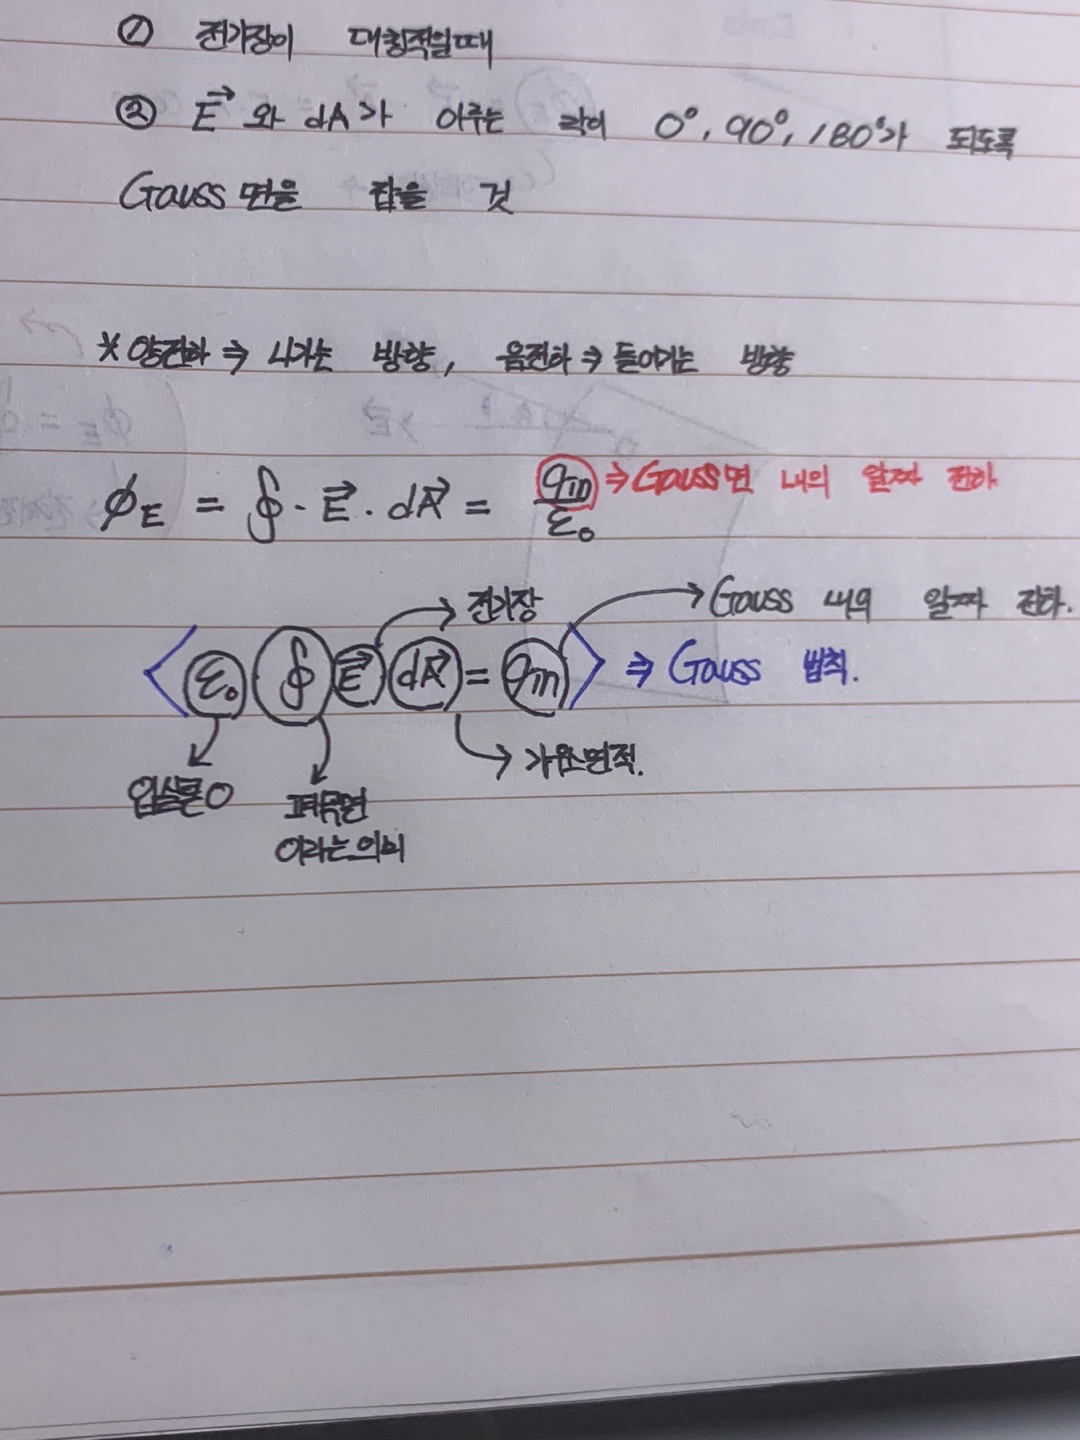 ① 전기장이 대칭적일때
② E→ 와 dA가 이루는 각이 0°, 90°, 180°가 되도록
Gauss 면을 잡을 것
* 양전하 ⇒ 나가는 방향, 음전하 ⇒ 들어가는 방향
ϕE = ∮ · E→ · dA→ = qin/ε0 ⇒ Gauss면 내의 알짜 전하
→ 전기장
→ Gauss 내의 알짜 전하.
< ε0 ∮ E→ dA→ = qin > ⇒ Gauss 법칙.
→ 가우스면적.
입실론0
폐곡면
이라는 의미